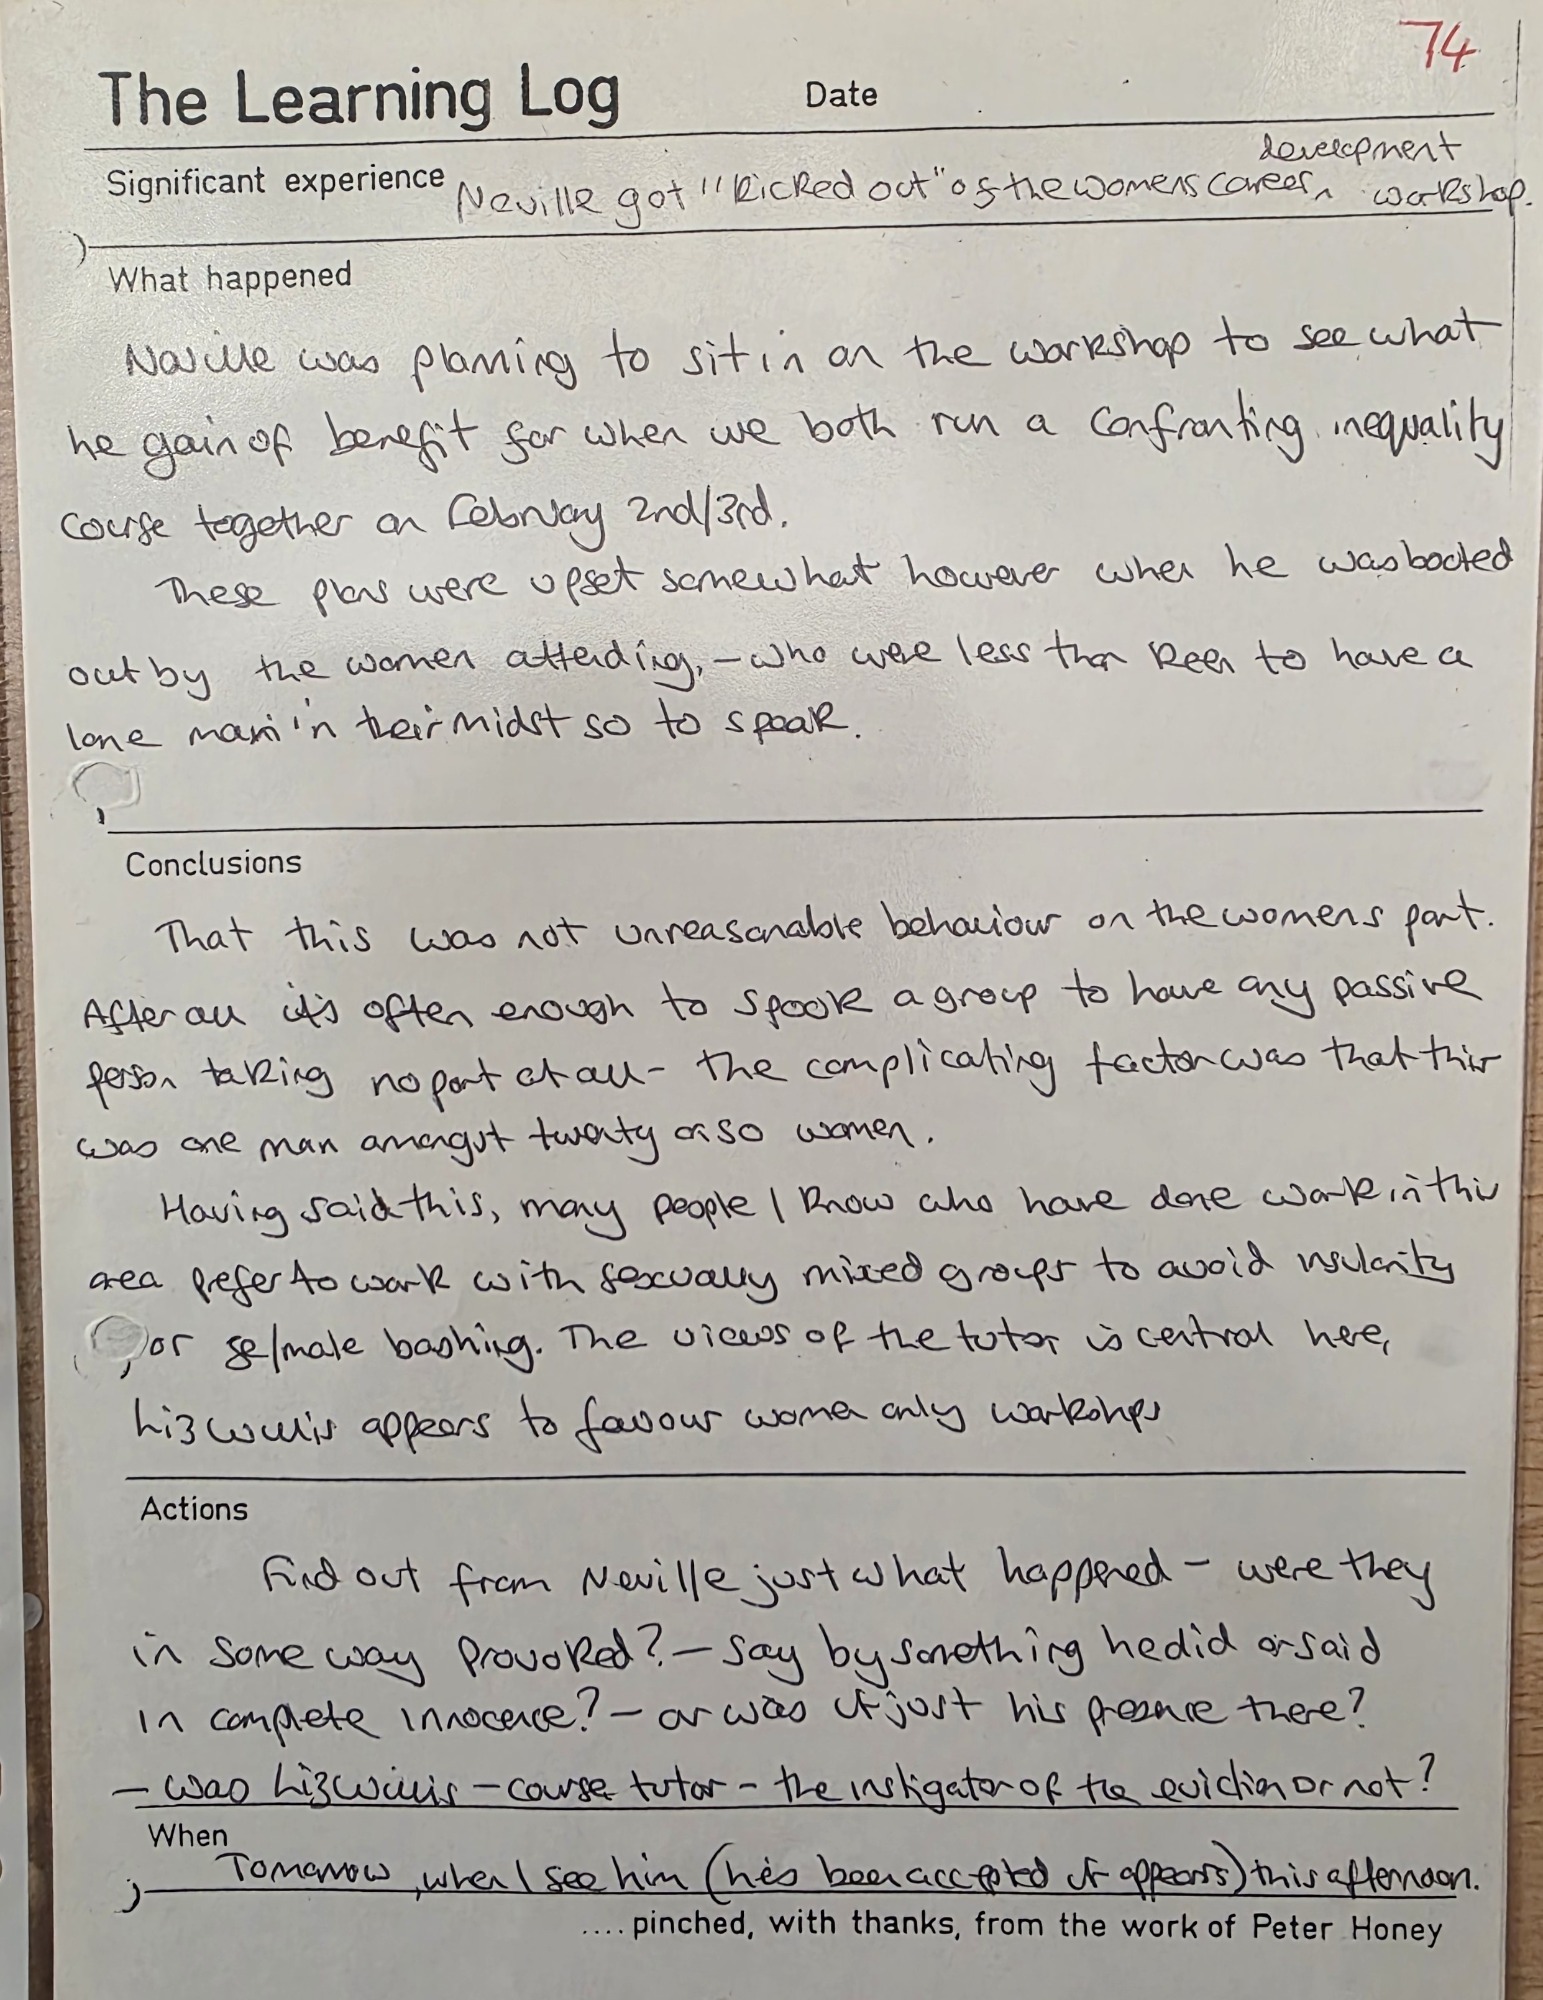 74
The Learning Log Date
development
Significant experience Neville got "kicked out" of the womens career ^ workshop.
What happened
Neville was planning to sit in on the workshop to see what
he gain of benefit for when we both run a confronting inequality
course together on February 2nd/3rd.
These plans were upset somewhat however when he was booted
out by the women attending, - who were less than keen to have a
lone man in their midst so to speak.
Conclusions
That this was not unreasonable behaviour on the womens part.
After all it's often enough to spook a group to have any passive
person taking no part at all - the complicating factor was that this
was one man amongst twenty or so women.
Having said this, many people I know who have done work in this
area prefer to work with sexually mixed groups to avoid insularity
or fe/male bashing. The views of the tutor is central here,
Liz Willis appears to favour women only workshops
Actions
Find out from Neville just what happened - were they
in some way provoked? - say by something he did or said
in complete innocence? - or was it just his presence there?
- was Liz Willis - course tutor - the instigator of the eviction or not?
When
Tomorrow, when I see him (he's been accepted it appears) this afternoon.
.... pinched, with thanks, from the work of Peter Honey